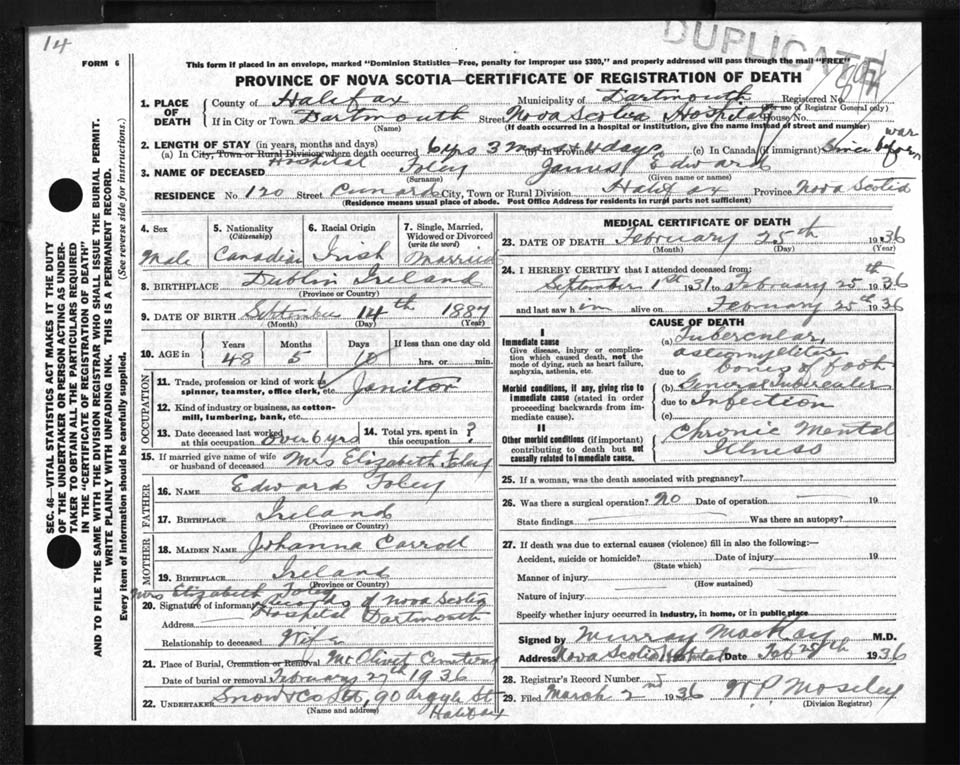 14
DUPLICATE
FORM 6
This form if placed in an envelope, marked "Dominion Statistics—Free, penalty for improper use $300," and properly addressed will pass through the mail "FREE"
PROVINCE OF NOVA SCOTIA—CERTIFICATE OF REGISTRATION OF DEATH
SEC. 46—VITAL STATISTICS ACT MAKES IT THE DUTY
OF THE UNDERTAKER OR PERSON ACTING AS UNDER-
TAKER TO OBTAIN ALL THE PARTICULARS REQUIRED
IN THE "CERTIFICATE OF REGISTRATION OF DEATH"
AND TO FILE THE SAME WITH THE DIVISION REGISTRAR WHO SHALL ISSUE THE BURIAL PERMIT.
WRITE PLAINLY WITH UNFADING INK. THIS IS A PERMANENT RECORD.
Every item of information should be carefully supplied. (See reverse side for instructions.)
1. PLACE OF DEATH County of Halifax Municipality of Dartmouth Registered No.
(use of Registrar General only)
If in City or Town Dartmouth Street Nova Scotia Hospital House No.
(Name) (If death occurred in a hospital or institution, give the name instead of street and number)
2. LENGTH OF STAY (in years, months and days)
(a) In City, Town or Rural Division where death occurred 6 yrs 3 mos 4 days (b) In Province (c) In Canada (if immigrant) Since before war
Hospital
3. NAME OF DECEASED Foley James Edward
(Surname) (Given name or names)
RESIDENCE No 120 Street Cunard City, Town or Rural Division Halifax Province Nova Scotia
(Residence means usual place of abode. Post Office Address for residents in rural parts not sufficient)
4. Sex Male
5. Nationality (Citizenship) Canadian
6. Racial Origin Irish
7. Single, Married, Widowed or Divorced (write the word) Married
8. BIRTHPLACE Dublin Ireland
(Province or Country)
9. DATE OF BIRTH September 14th 1887
(Month) (Day) (Year)
10. AGE in Years Months Days If less than one day old
48 5 10 hrs. or min.
OCCUPATION
11. Trade, profession or kind of work as spinner, teamster, office clerk, etc. Janitor
12. Kind of industry or business, as cotton-mill, lumbering, bank, etc.
13. Date deceased last worked at this occupation over 6 yrs 14. Total yrs. spent in this occupation ?
15. If married give name of wife or husband of deceased Mrs Elizabeth Foley
FATHER
16. NAME Edward Foley
17. BIRTHPLACE Ireland
(Province or Country)
MOTHER
18. MAIDEN NAME Johanna Carroll
19. BIRTHPLACE Ireland
(Province or Country)
Mrs Elizabeth Foley
20. Signature of informant Records of Nova Scotia
Address Hospital Dartmouth
Relationship to deceased Wife
21. Place of Burial, Cremation or Removal Mt Olivet Cemetery
Date of burial or removal February 27th 1936
22. UNDERTAKER Snow & Co Ltd, 90 Argyle St
(Name and address) Halifax
MEDICAL CERTIFICATE OF DEATH
23. DATE OF DEATH February 25th 1936
(Month) (Day) (Year)
24. I HEREBY CERTIFY that I attended deceased from:
September 1st 1931 to February 25th 1936
and last saw him alive on February 25th 1936
CAUSE OF DEATH
I
Immediate cause
Give disease, injury or complication which caused death, not the mode of dying, such as heart failure, asphyxia, asthenia, etc.
(a) Tubercular
osteomyelitis
due to bones of foot
Morbid conditions, if any, giving rise to immediate cause (stated in order proceeding backwards from immediate cause).
(b) General tubercular
due to Infection
(c)
II
Other morbid conditions (if important) contributing to death but not causally related to immediate cause.
Chronic Mental
Illness
25. If a woman, was the death associated with pregnancy?
26. Was there a surgical operation? No Date of operation 19
State findings Was there an autopsy?
27. If death was due to external causes (violence) fill in also the following:—
Accident, suicide or homicide? Date of injury 19
(State which)
Manner of injury
(How sustained)
Nature of injury
Specify whether injury occurred in industry, in home, or in public place
Signed by Murray MacKay M.D.
Address Nova Scotia Hospital Date Feb 25th 1936
28. Registrar's Record Number
29. Filed March 2nd 1936 H.P. Moseley
(Division Registrar)